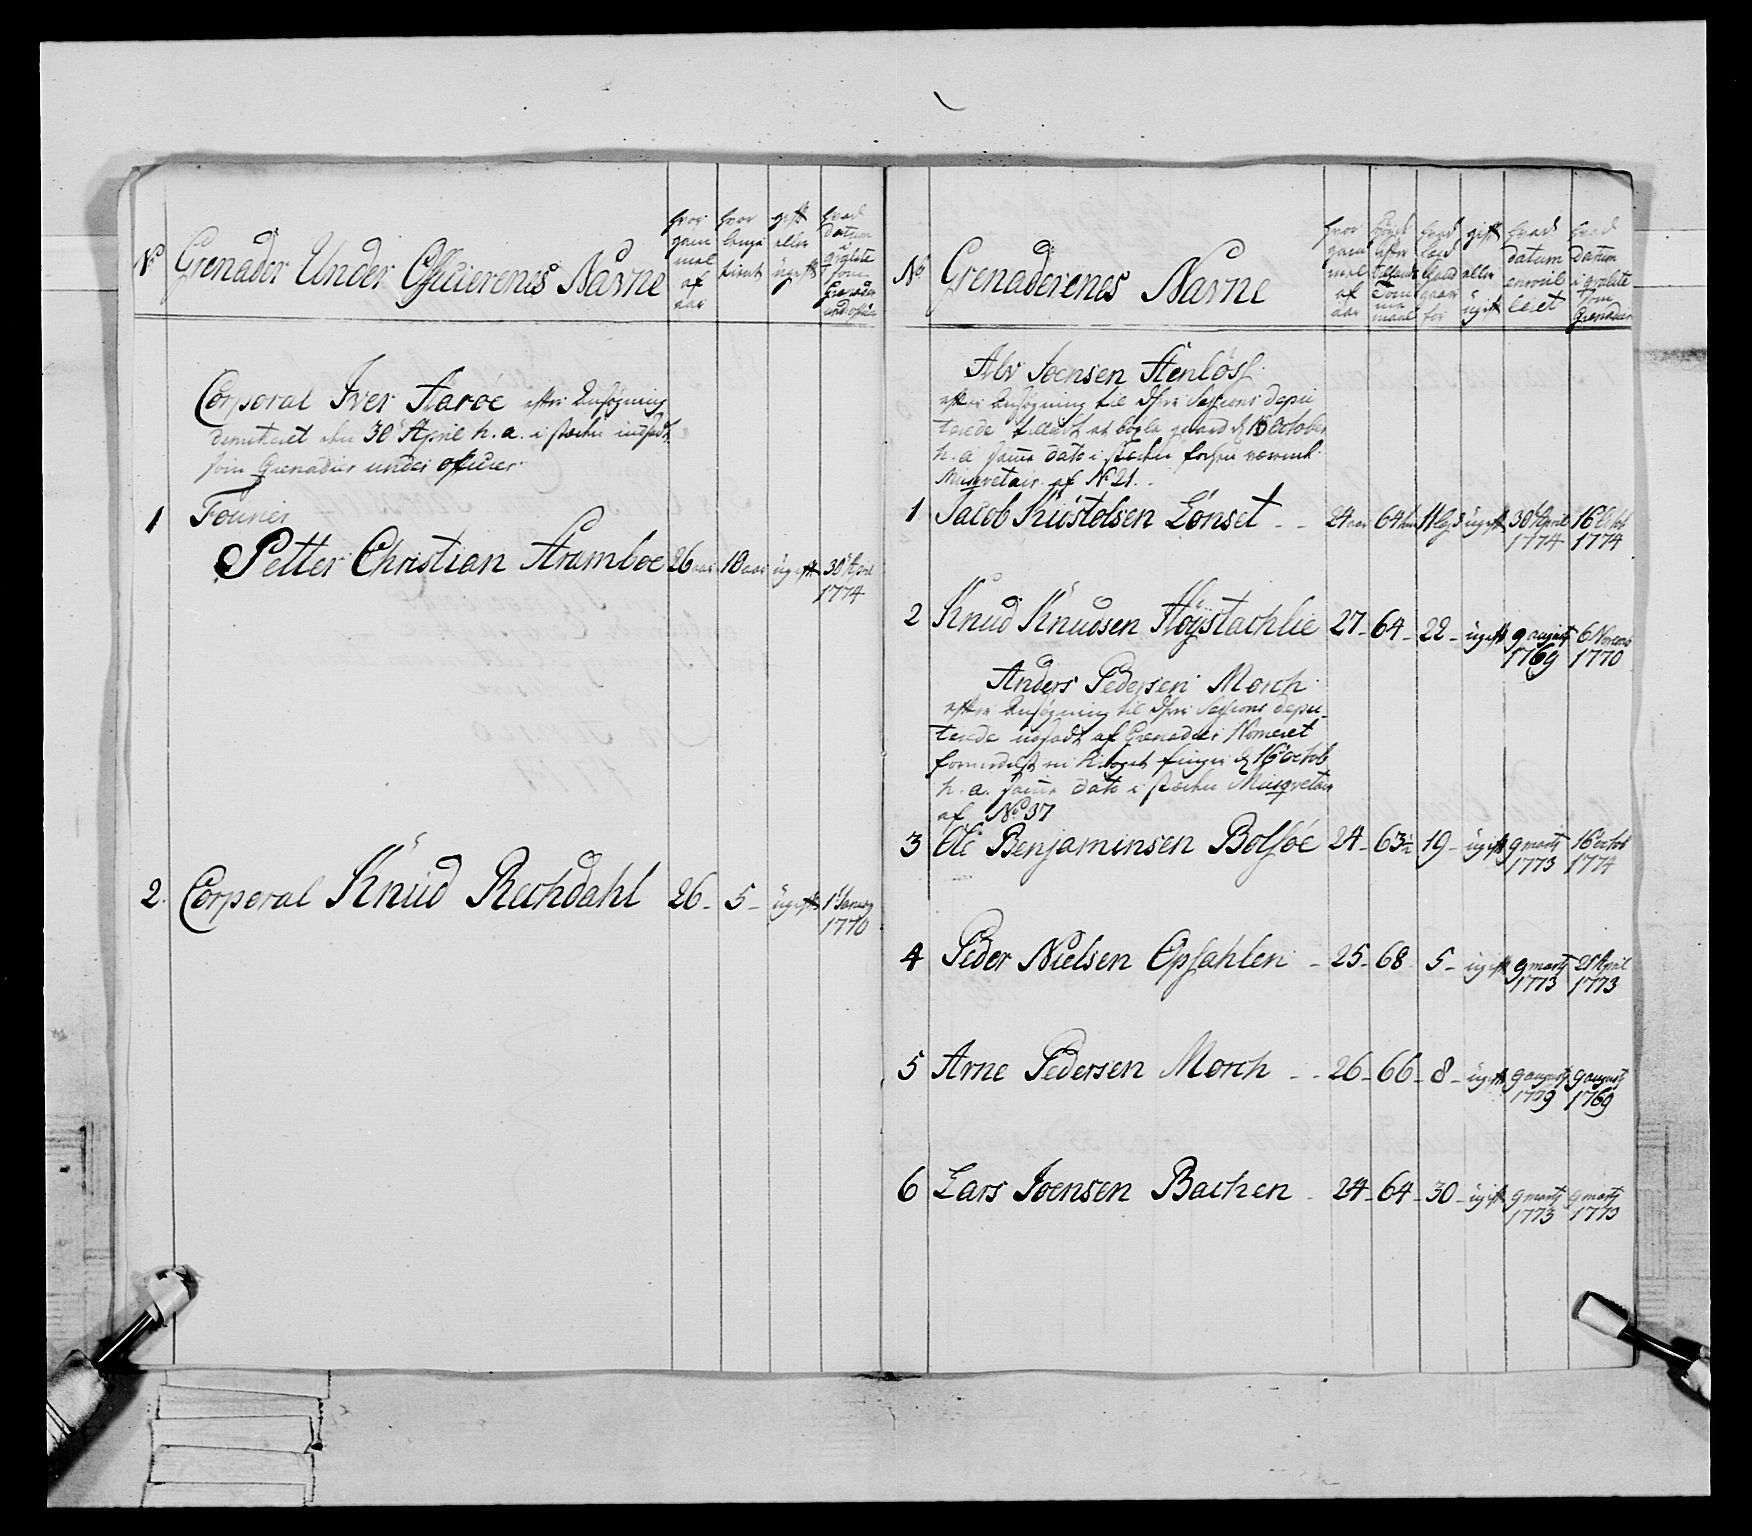 No
Grenader Under Officierenes Navne
hvor gam mel af aar
hvor lenge tient
gift eller ugift
hvad datum i qvalite som Grenader und officier
Corporal Iver Aarøe efter Ansøgning
dimiteret den 30 April h. a. i stæden indsadt
som Grenadier under officier
1 Fourier
Petter Christian Strømboe 26 aar 10 aar ugift 30 April
1774
2. Corporal Knud Rechdahl 26 - 5 - ugift 1 Januarj
1770
No
Grenaderenes Navne
hvor gam mel af aar
Høyde efter Tom maal
hvad leed gaar for
gift eller ugift
hvad datum enroul leret
hvad datum i qvalite som Grenader
Alv Joensen Stenløs
efter Ansøgning til Session depu
terede tilladt at den 15 October
h. a. samme dato i stæden forhen værende
Musqvetair af No 21.
1 Jacob Kristolsen Lønset - - 24 aar 64 11 ugift 30 April 16 Octob
1774 1774
2 Knud Knudsen Høystachlie 27 - 64 - 22 - ugift 9 august 6 Novemb
1769 1770
Anders Pedersen Morch
efter Ansøgning til Sessions depu-
terede udsadt af Grenadier Nomeret
formedelst en finger d. 16 Octob
h. a. samme dato i stæden Musqvetair
af No 37
3 Ole Benjaminsen Bolsøe 24 - 63½ 19 - ugift 9 martj 16 Octob
1773 1774
4 Peder Nielsen Opsahlen - 25 - 68 5 - ugift 9 martj 21 April
1773 1773
5 Arne Pedersen Morch - - 26 - 66 - 8 - ugift 9 augustj 9 augustj
1769
6 Lars Joensen Bachen - 24 - 64 - 30 - ugift 9 martj 9 martj
1773 1773